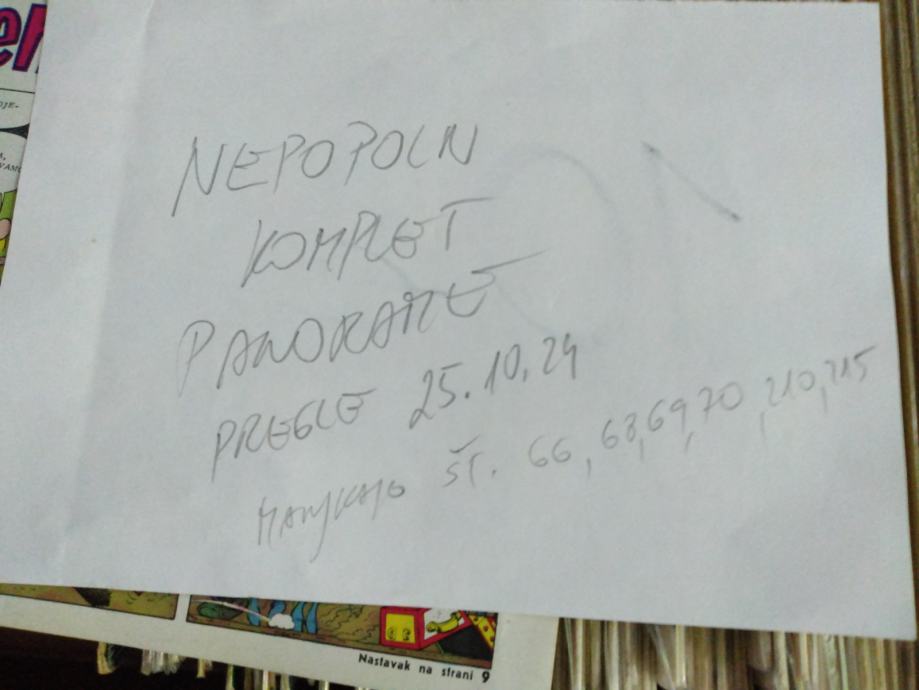 er
OJE-
NEPOPOLN
KOMPLET
PANORAME
PREGLE 25.10.24
MANJKAJO ŠT. 66, 68, 69, 70, 210, 215
Nastavak na strani 9